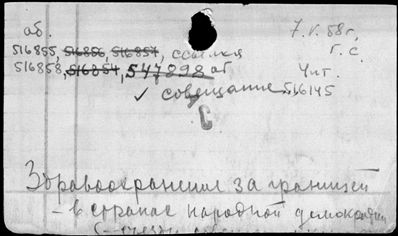 аб. 7.V.58г.
516855, 516856, 516857, ссылка Г.С.
516858, 516854, 547898 аб Чит.
✓ совещание 516145
С
Здравоохранение за границей
– в странах народной демократии